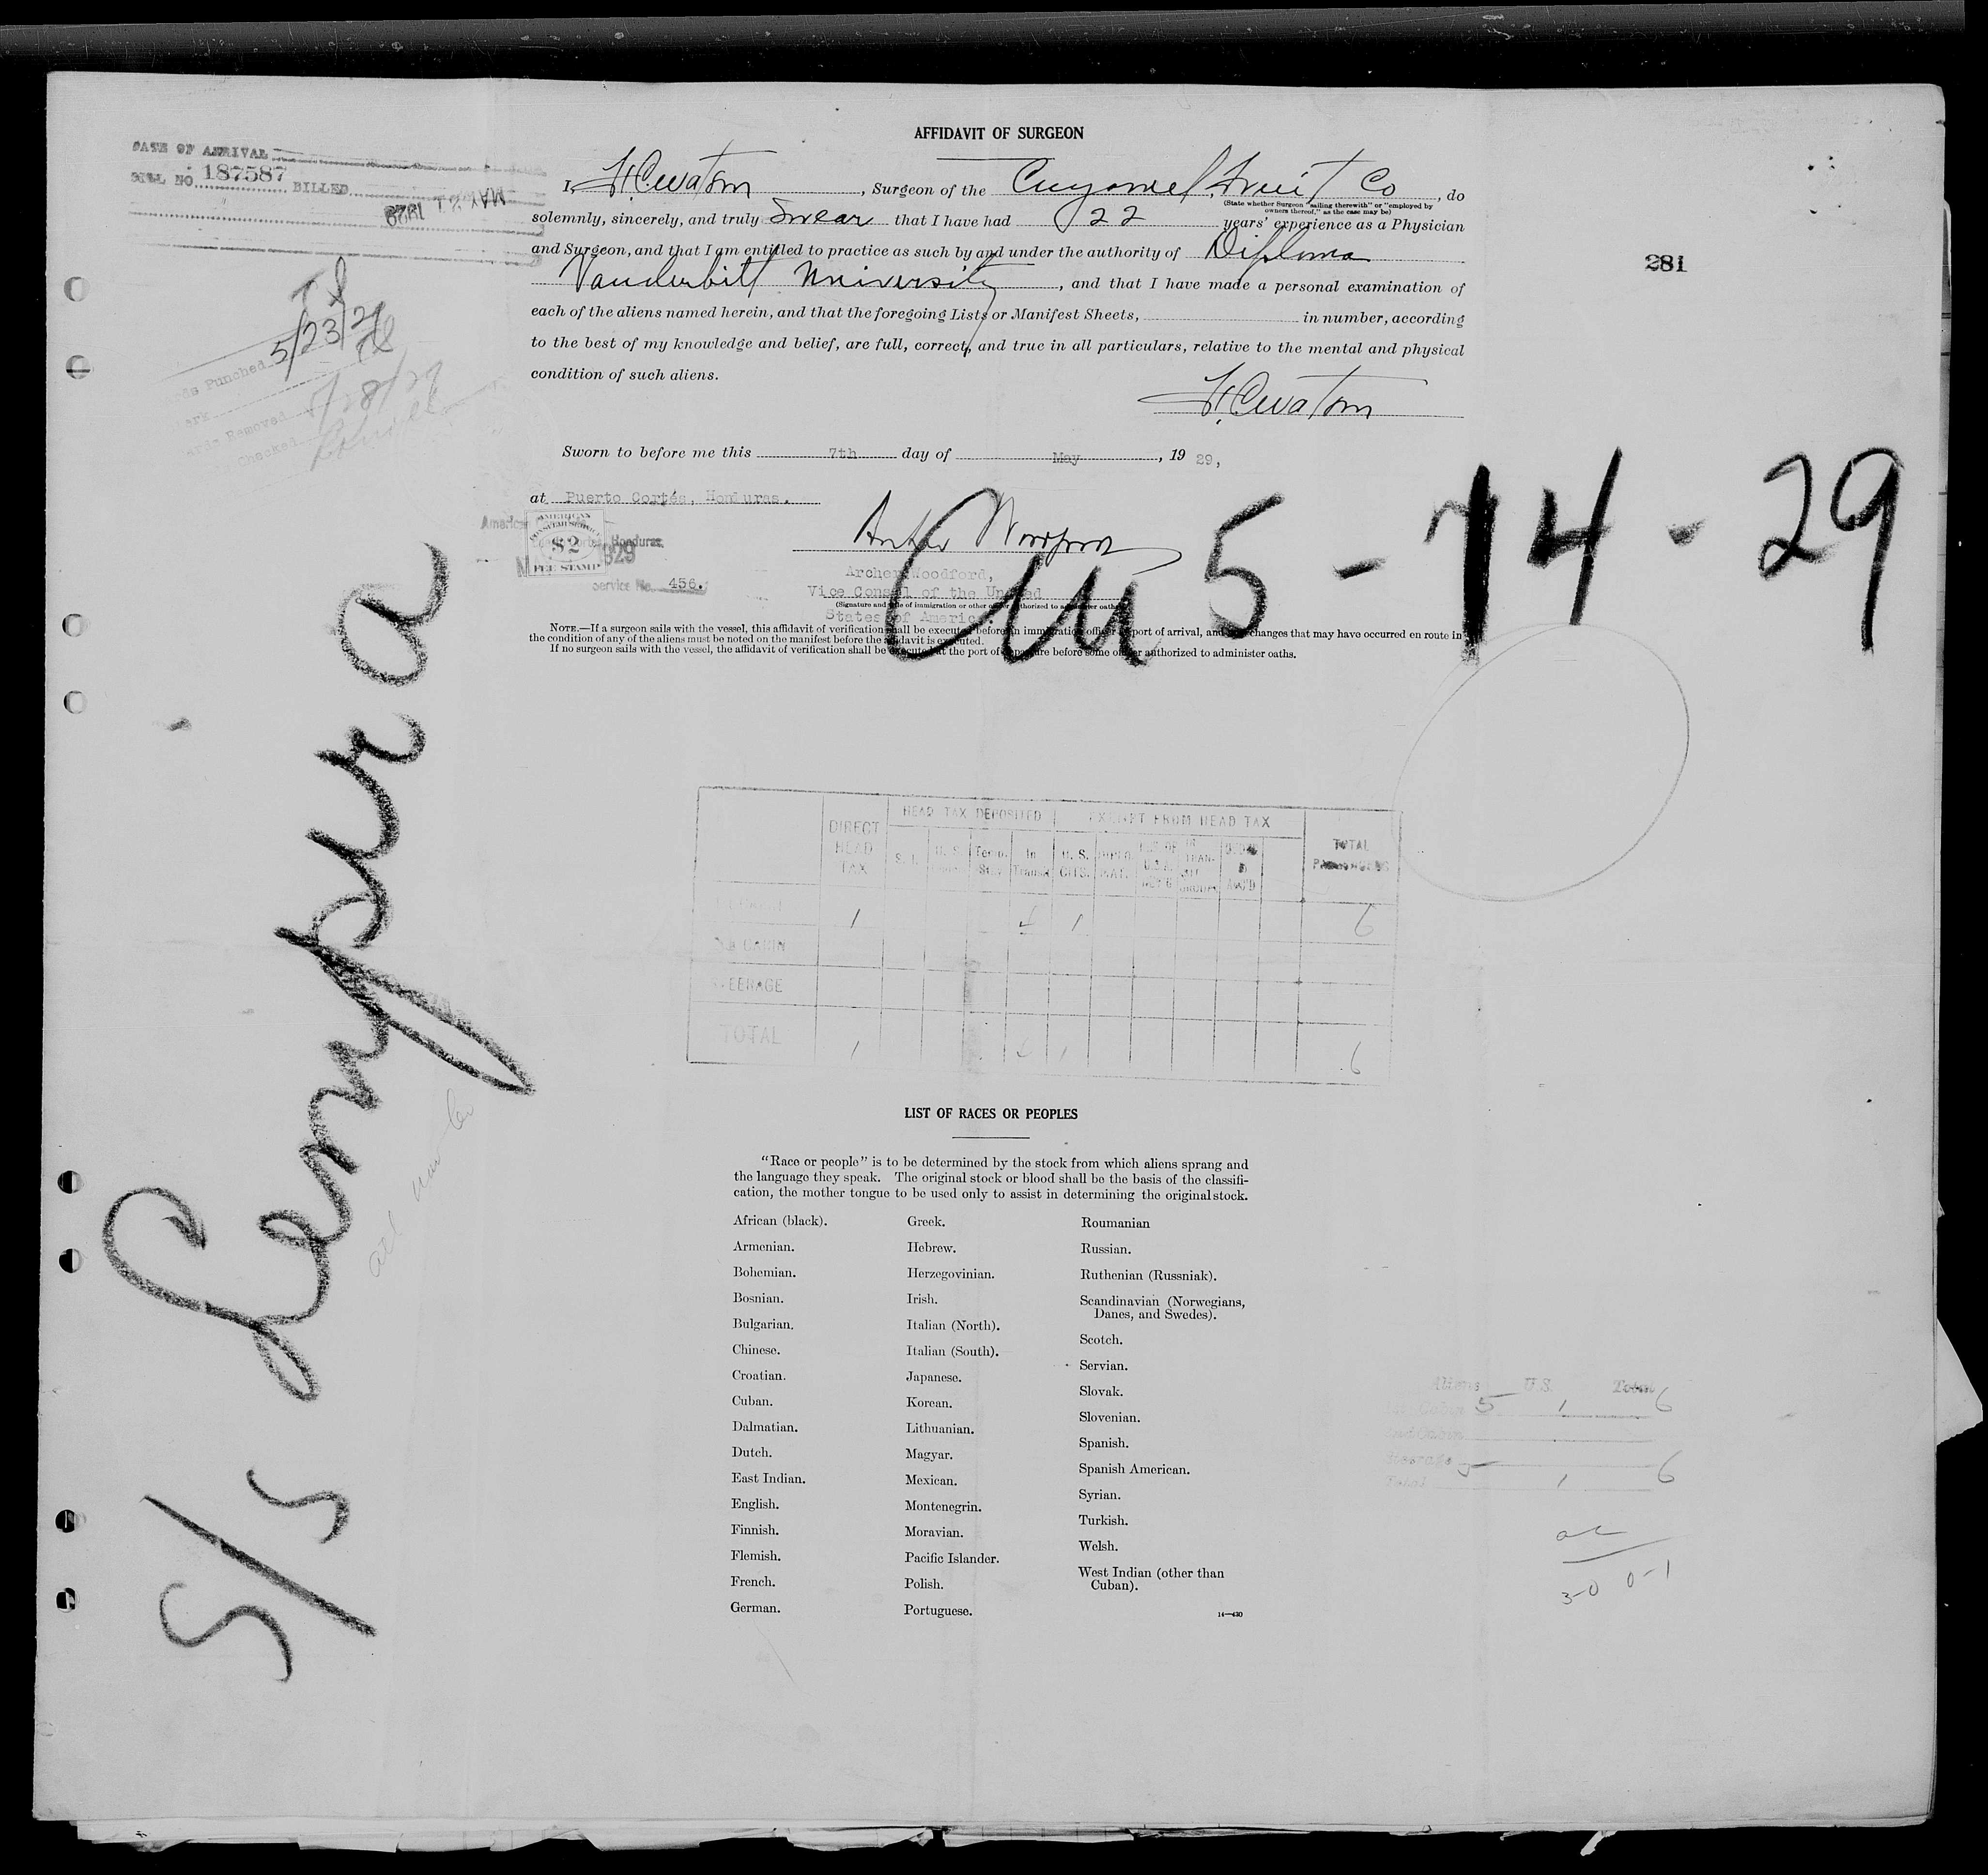 AFFIDAVIT OF SURGEON
DATE OF ARRIVAL
BILL NO. 187587 BILLED
MAY 21 1929
I, H C Watson, Surgeon of the Cuyamel Fruit Co, do
(State whether Surgeon "sailing therewith" or "employed by
owners thereof," as the case may be)
solemnly, sincerely, and truly Swear that I have had 22 years' experience as a Physician
and Surgeon, and that I am entitled to practice as such by and under the authority of Diploma
Vanderbilt University, and that I have made a personal examination of
each of the aliens named herein, and that the foregoing Lists or Manifest Sheets, in number, according
to the best of my knowledge and belief, are full, correct, and true in all particulars, relative to the mental and physical
condition of such aliens.
281
H C Watson
Punched 5/23/29
Removed
Checked
Sworn to before me this 7th day of May, 19 29,
at Puerto Cortés, Honduras.
AMERICAN
CONSULAR SERVICE
$2
FEE STAMP
Honduras
Service No. 456.
Archer Woodford
Archer Woodford,
Vice Consul of the United
(Signature and title of immigration or other officer authorized to administer oaths)
States of America
5-14-29
NOTE.—If a surgeon sails with the vessel, this affidavit of verification shall be executed before an immigration officer at port of arrival, and any changes that may have occurred en route in
the condition of any of the aliens must be noted on the manifest before the affidavit is executed.
If no surgeon sails with the vessel, the affidavit of verification shall be executed at the port of departure before some officer authorized to administer oaths.
S/S Lempira
DIRECT HEAD TAX
HEAD TAX DEPOSITED
EXEMPT FROM HEAD TAX
TOTAL PASSENGERS
S. I.
U. S.
Temp. Stay
In Transit
U. S. CITS.
1 4 1 6
CABIN
STEERAGE
TOTAL 1 4 1 6
LIST OF RACES OR PEOPLES
"Race or people" is to be determined by the stock from which aliens sprang and
the language they speak. The original stock or blood shall be the basis of the classifi-
cation, the mother tongue to be used only to assist in determining the original stock.
African (black).
Armenian.
Bohemian.
Bosnian.
Bulgarian.
Chinese.
Croatian.
Cuban.
Dalmatian.
Dutch.
East Indian.
English.
Finnish.
Flemish.
French.
German.
Greek.
Hebrew.
Herzegovinian.
Irish.
Italian (North).
Italian (South).
Japanese.
Korean.
Lithuanian.
Magyar.
Mexican.
Montenegrin.
Moravian.
Pacific Islander.
Polish.
Portuguese.
Roumanian
Russian.
Ruthenian (Russniak).
Scandinavian (Norwegians,
Danes, and Swedes).
Scotch.
Servian.
Slovak.
Slovenian.
Spanish.
Spanish American.
Syrian.
Turkish.
Welsh.
West Indian (other than
Cuban).
14—430
Aliens U.S. Total
Cabin 5 1 6
Steerage
Total 5 1 6
3-0 0-1